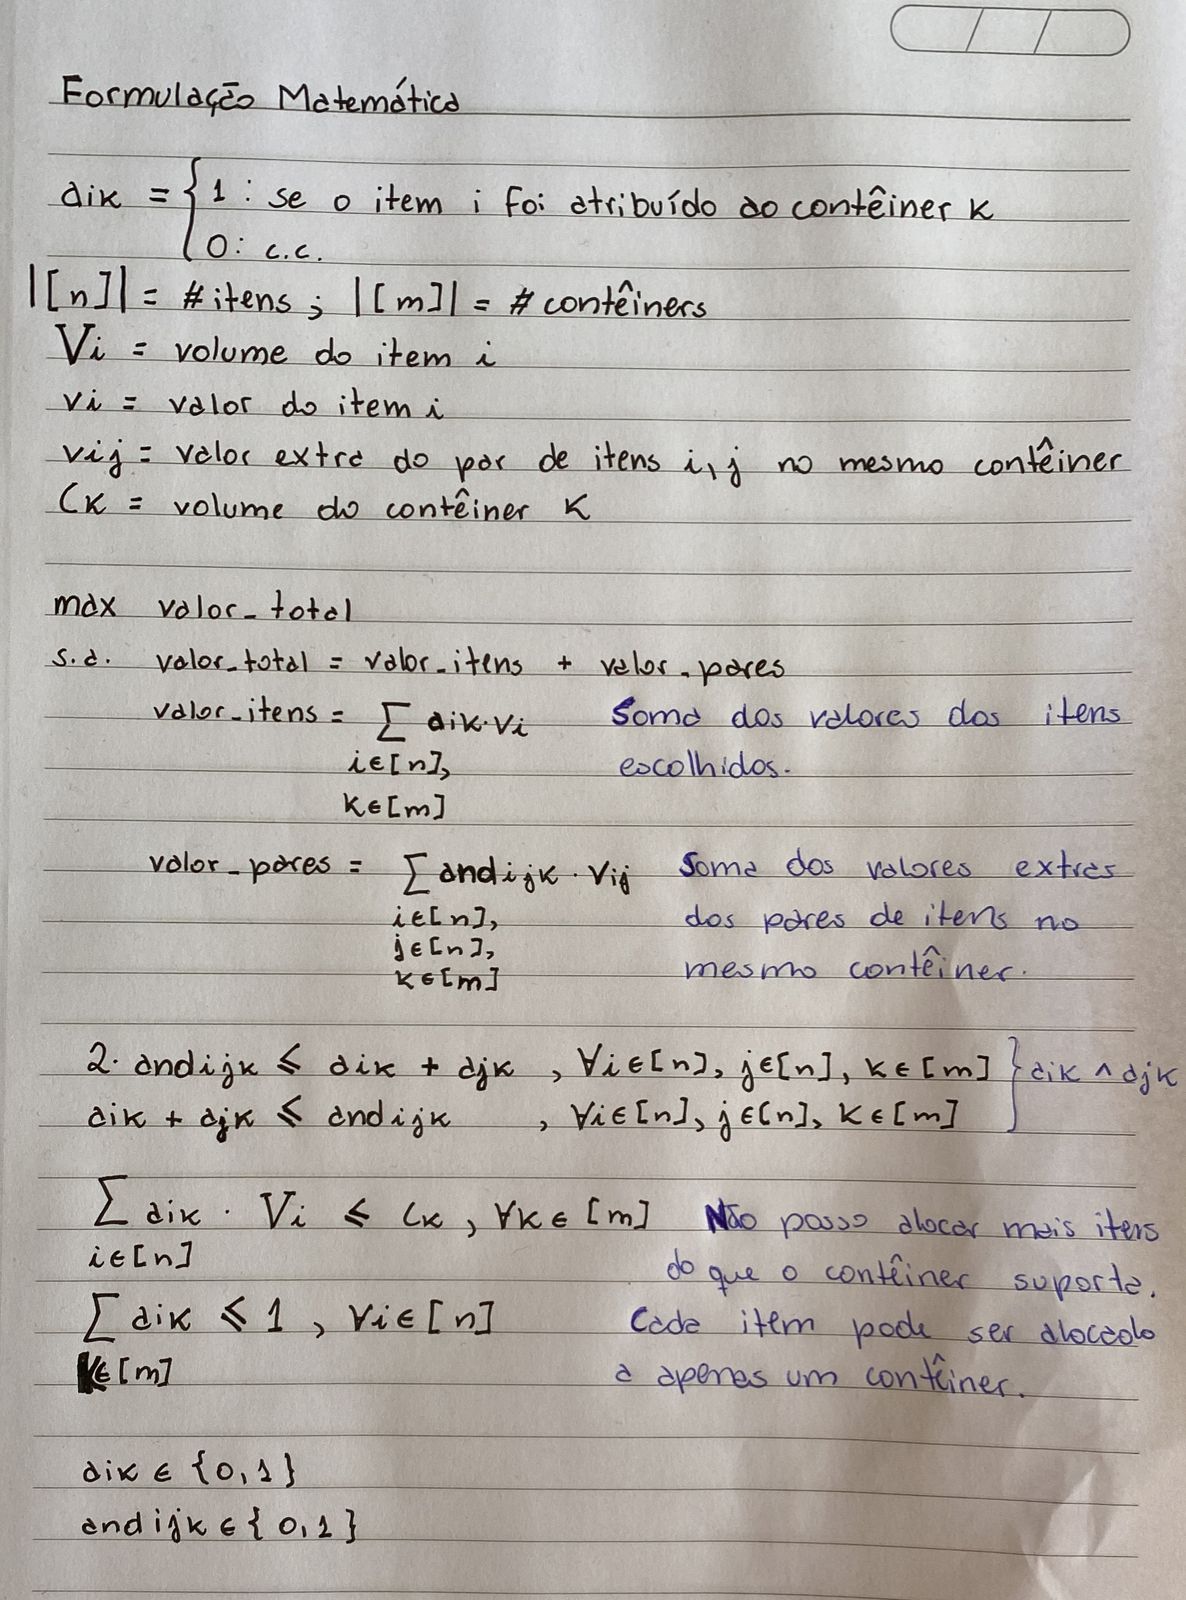 Formulação Matemática
aik = { 1 : se o item i foi atribuído ao contêiner k
0: c.c.
|[n]| = # itens ; |[m]| = # contêiners
Vi = volume do item i
vi = valor do item i
vij = valor extra do par de itens i, j no mesmo contêiner
Ck = volume do contêiner k
max valor_total
s.a. valor_total = valor_itens + valor_pares
valor_itens = ∑ aik·vi Soma dos valores dos itens
i∈[n], escolhidos.
k∈[m]
valor_pares = ∑ andijk · vij Soma dos valores extras
i∈[n], dos pares de itens no
j∈[n],
k∈[m] mesmo contêiner.
2· andijk ≤ aik + ajk , ∀i∈[n], j∈[n], k∈[m] } aik ∧ ajk
aik + ajk ≤ andijk , ∀i∈[n], j∈[n], k∈[m]
∑ aik · Vi ≤ Ck , ∀k∈[m] Não posso alocar mais itens
i∈[n] do que o contêiner suporta.
∑ aik ≤ 1 , ∀i∈[n] Cada item pode ser alocado
k∈[m] a apenas um contêiner.
aik ∈ {0,1}
andijk ∈ {0,1}